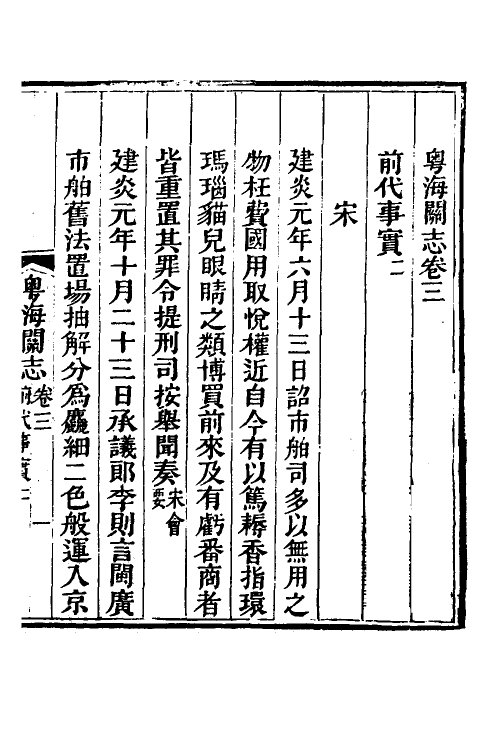 粤海關志卷三
前代事實二
宋
建炎元年六月十三日詔市舶司多以無用之
物枉費國用取悅權近自今有以篤耨香指環
瑪瑙貓兒眼睛之類博買前來及有虧番商者
皆重置其罪令提刑司按舉聞奏宋會要
建炎元年十月二十三日承議郎李則言閩廣
市舶舊法置場抽解分爲麤細二色般運入京
粤海關志 卷三 前代事實二 一